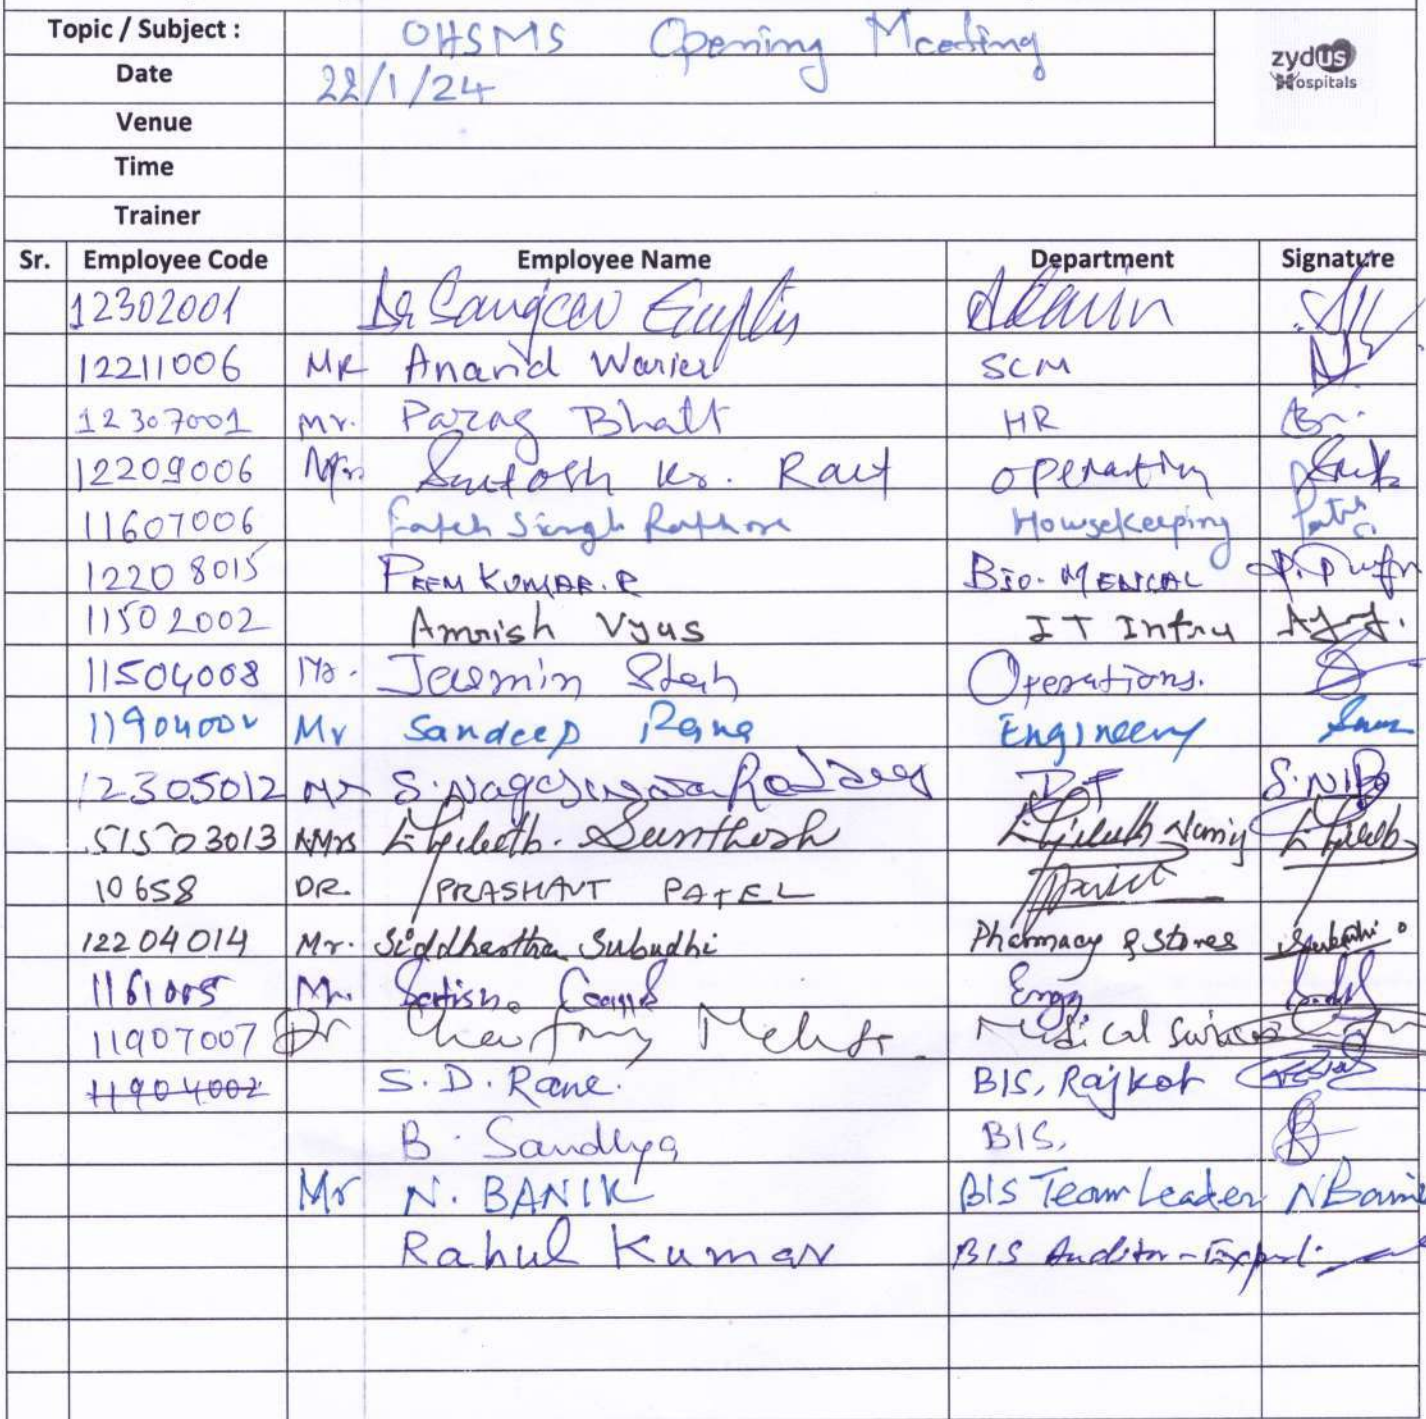 Topic / Subject : OHSMS Opening Meeting
zydus Hospitals
Date 22/1/24
Venue
Time
Trainer
Sr. Employee Code Employee Name Department Signature
12302001 Dr Sangeev Gupta Admin
12211006 MR Anand Warier SCM
12307001 Mr. Parag Bhatt HR
12209006 Mr. Santosh Kr. Raut Operation
11607006 Fateh Singh Rathore Howsekeeping
12208015 PREM KUMAR. R BIO. MEDICAL
11502002 Amrish Vyas IT Infra
11504008 Mr. Jasmin Shah Operations.
11904002 Mr Sandeep Rana Engineery
12305012 Mr S. Nageswara Raddey
51503013 Mrs Santhosh
10658 DR. PRASHANT PATEL
12204014 Mr. Siddhartha Subudhi Pharmacy & Stores Subudhi
Mr. Satish Engg
11907007 Dr Mehta Medical Services
11904002 S. D. Rane. BIS, Rajkot
B. Sandhya BIS,
Mr N. BANIK BIS Team Leader NBanik
Rahul Kumar BIS Auditor-Expert.